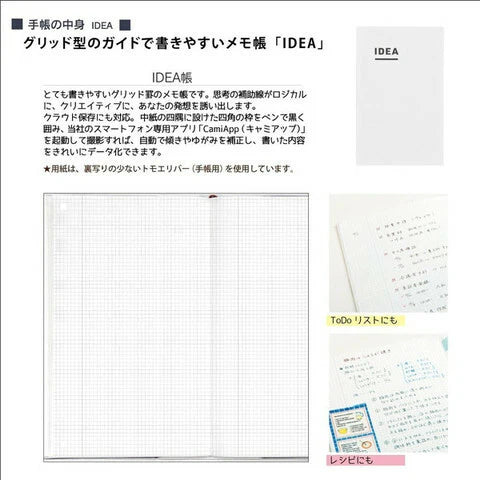 ■ 手帳の中身 IDEA ■
グリッド型のガイドで書きやすいメモ帳「IDEA」
IDEA
IDEA帳
とても書きやすいグリッド罫のメモ帳です。思考の補助線がロジカル
に、クリエイティブに、あなたの発想を誘い出します。
クラウド保存にも対応。中紙の四隅に設けた四角の枠をペンで黒く
囲み、当社のスマートフォン専用アプリ「CamiApp(キャミアップ)」
を起動して撮影すれば、自動で傾きやゆがみを補正し、書いた内容
をきれいにデータ化できます。
★用紙は、裏写りの少ないトモエリバー(手帳用)を使用しています。
ToDoリストにも
レシピにも